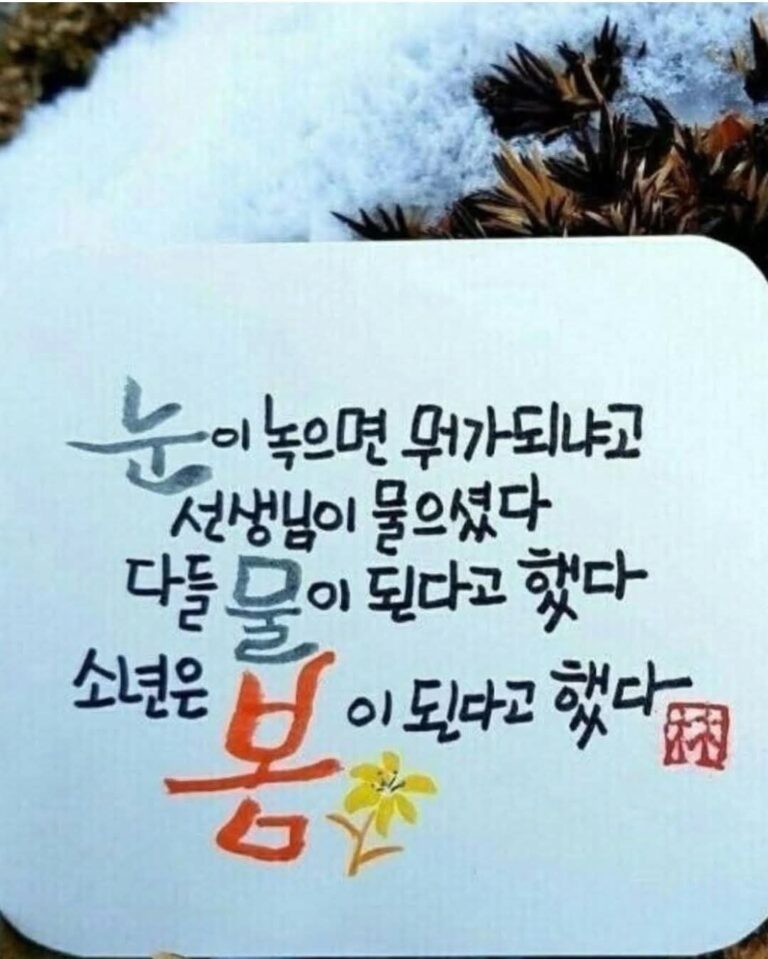 눈이 녹으면 뭐가되냐고
선생님이 물으셨다
다들 물이 된다고 했다
소년은 봄이 된다고 했다